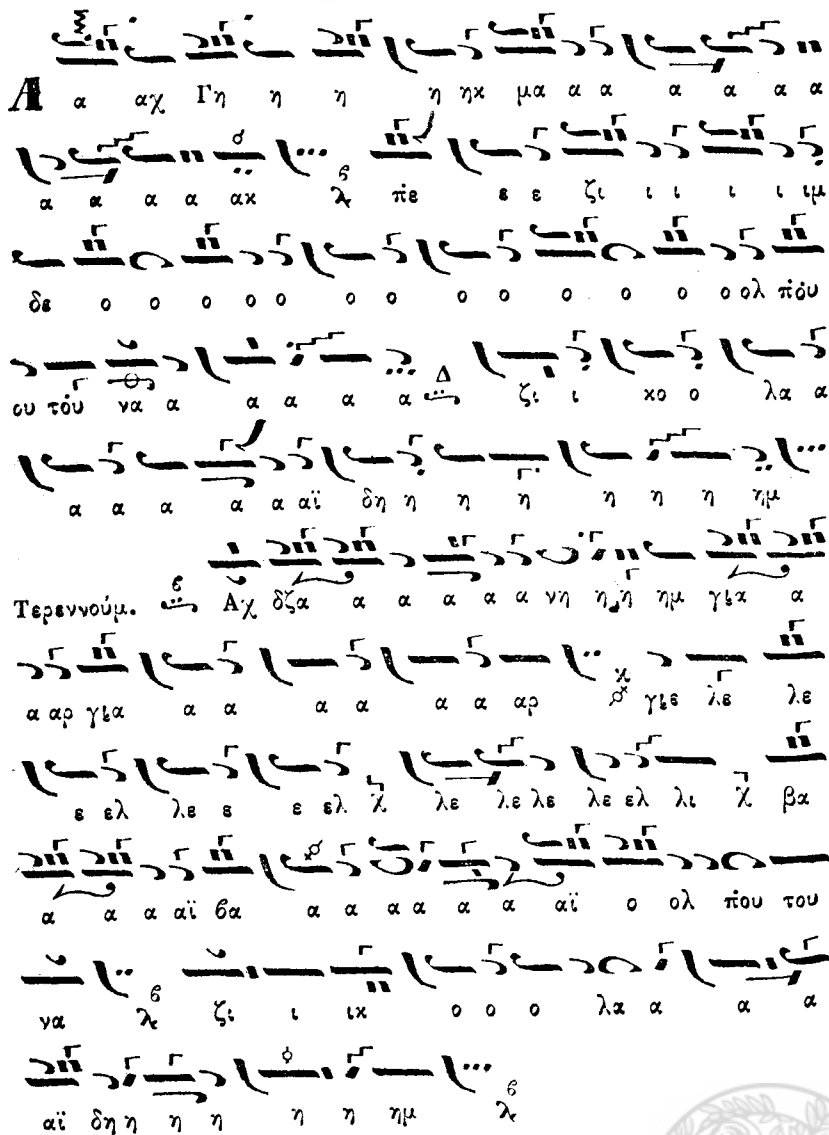 Α α αχ Γη η η η ηκ μα α α α α α α
α α α α ακ πε ε ε ζι ι ι ι ι ιμ
δε ο ο ο ο ο ο ο ο ο ο ο ο ο ολ πόυ
ου τόυ να α α α α α Δ ζι ι κο ο λα α
α α α α α αϊ δη η η η η η η ημ
Τερεννούμ. Αχ δζα α α α α α νη η η ημ για α
α αρ για α α α α α α αρ γιε λε λε
ε ελ λε ε ε ελ λε λε λε λε ελ λι βα
α α α αϊ βα α α α α α α αϊ ο ολ που του
να ζι ι ικ ο ο ο λα α α α
αϊ δη η η η η η ημ